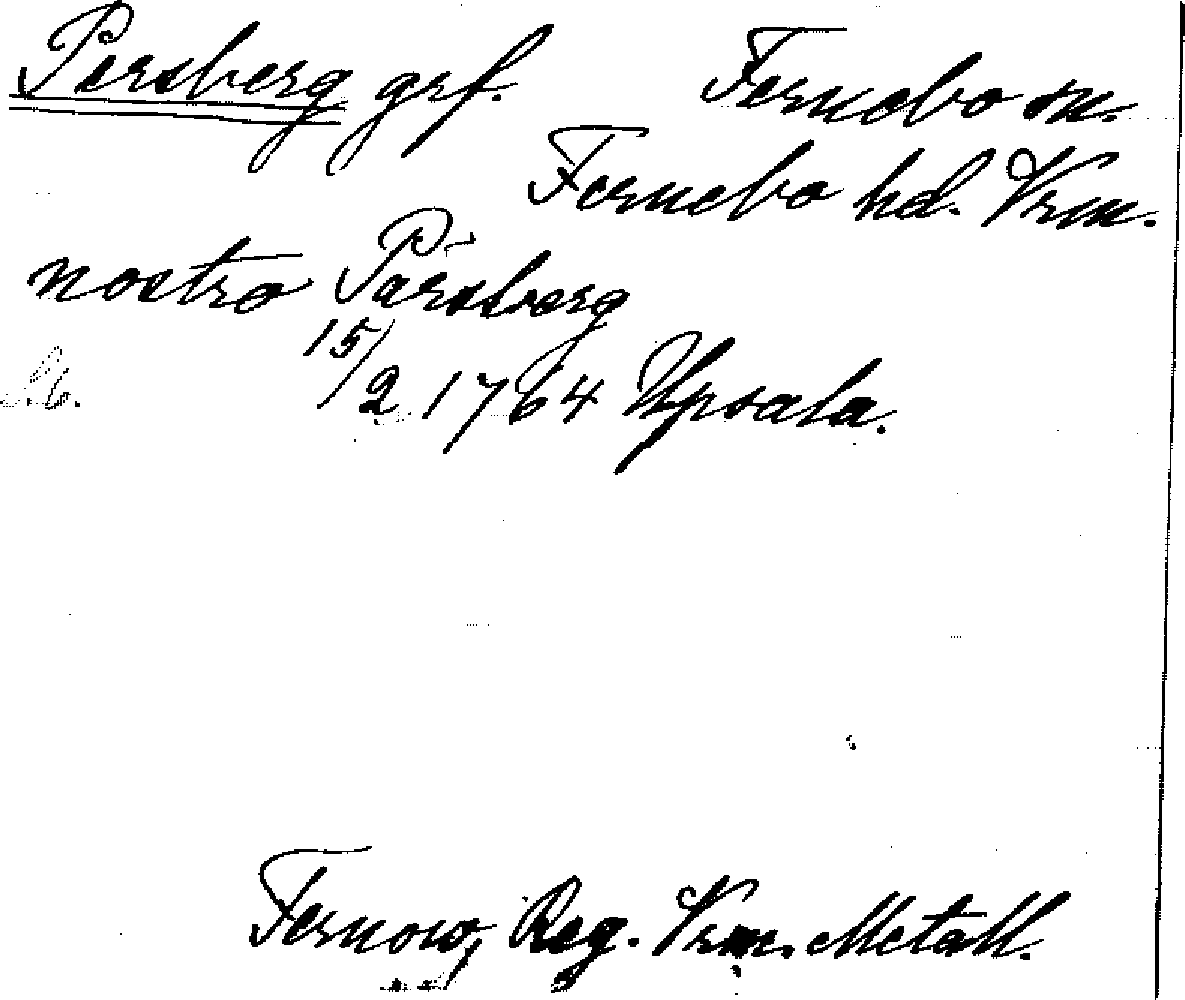 Persberg grf. Fernebo sn.
Fernebo hd. Vrm.
nostro Pärsberg
15/2 1764 Upsala.
Fernow, Reg. Vrm. Metall.